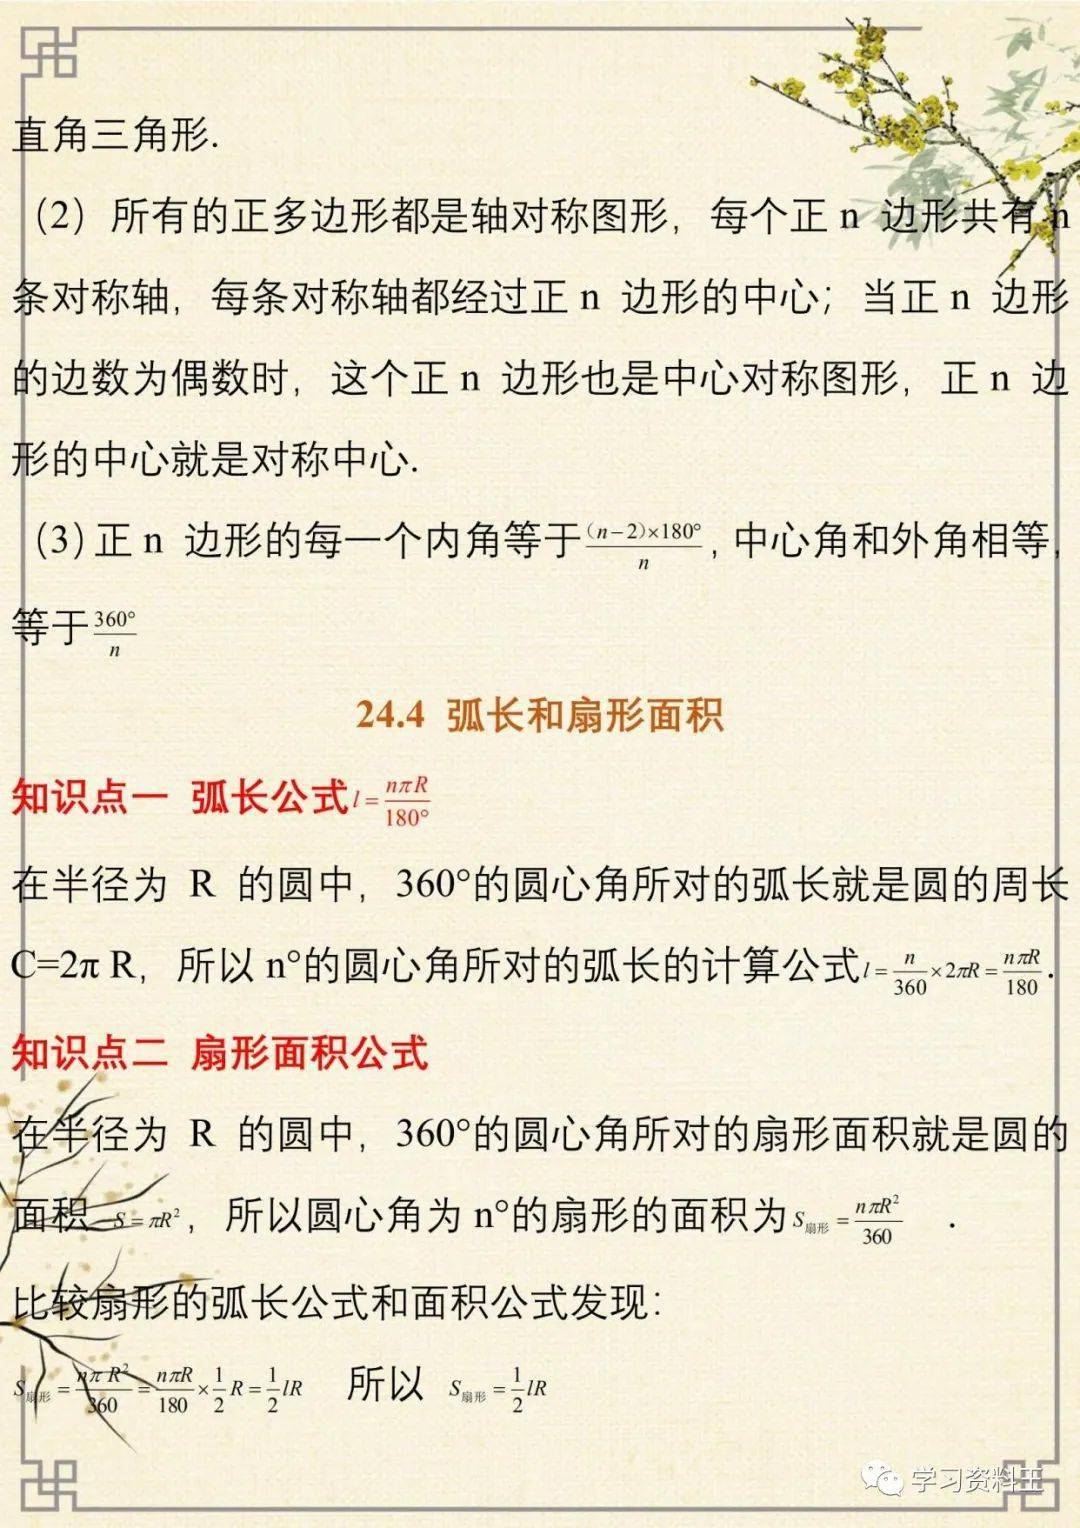 直角三角形.
（2）所有的正多边形都是轴对称图形，每个正 n 边形共有 n
条对称轴，每条对称轴都经过正 n 边形的中心；当正 n 边形
的边数为偶数时，这个正 n 边形也是中心对称图形，正 n 边
形的中心就是对称中心.
（3）正 n 边形的每一个内角等于 (n−2)×180°/n ，中心角和外角相等，
等于 360°/n
24.4 弧长和扇形面积
知识点一 弧长公式 l = nπR/180°
在半径为 R 的圆中，360°的圆心角所对的弧长就是圆的周长
C=2π R，所以 n°的圆心角所对的弧长的计算公式 l = n/360 × 2πR = nπR/180 .
知识点二 扇形面积公式
在半径为 R 的圆中，360°的圆心角所对的扇形面积就是圆的
面积 S = πR²，所以圆心角为 n°的扇形的面积为 S扇形 = nπR²/360 .
比较扇形的弧长公式和面积公式发现：
S扇形 = nπ R²/360 = nπR/180 × 1/2 R = 1/2 lR 所以 S扇形 = 1/2 lR
学习资料王